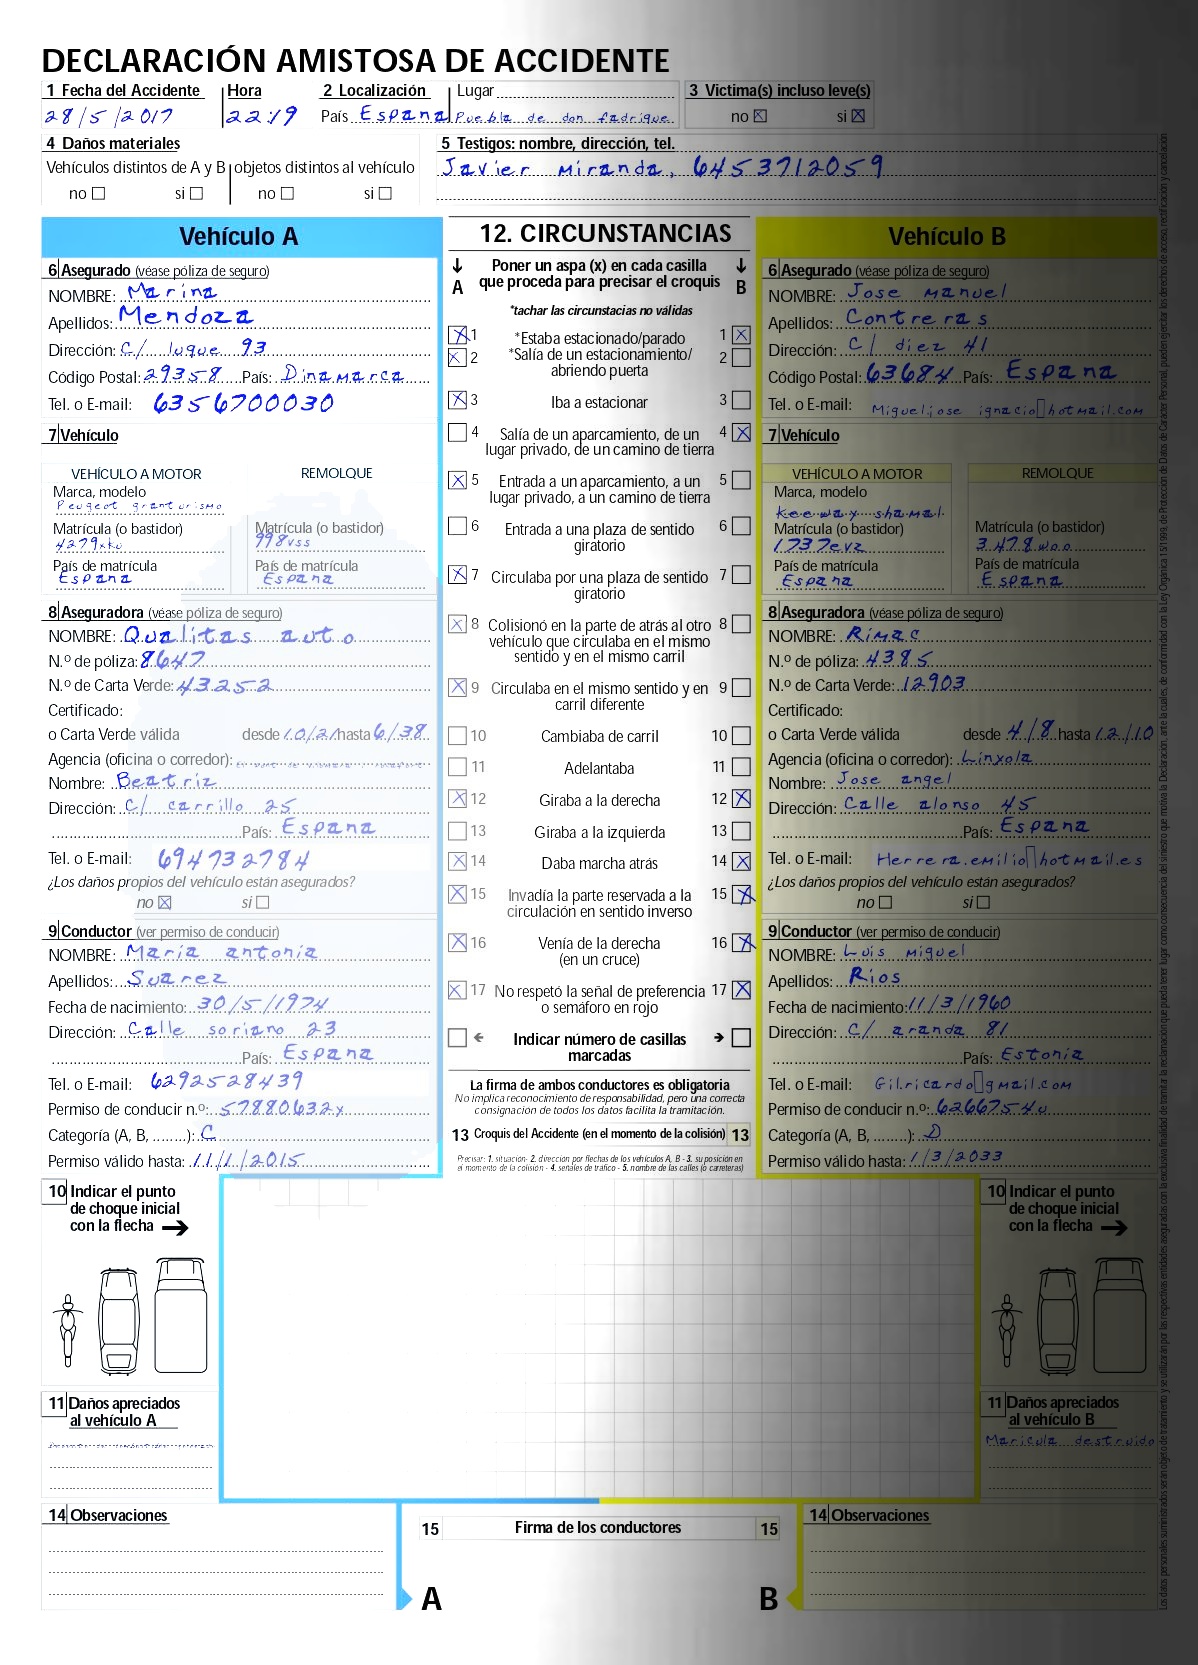 DECLARACIÓN AMISTOSA DE ACCIDENTE
1 Fecha del Accidente Hora 2 Localización Lugar 3 Victima(s) incluso leve(s)
28/5/2017 22:19 País Espana Puebla de don fadrique no si
4 Daños materiales 5 Testigos: nombre, dirección, tel.
Vehículos distintos de A y B objetos distintos al vehículo Javier Miranda, 6453712059
no si no si
Vehículo A
6 Asegurado (véase póliza de seguro)
NOMBRE: Marina
Apellidos: Mendoza
Dirección: C/ luque 93
Código Postal: 29358 País: Dinamarca
Tel. o E-mail: 6356700030
7 Vehículo
VEHÍCULO A MOTOR REMOLQUE
Marca, modelo
Peugeot granturismo
Matrícula (o bastidor) Matrícula (o bastidor)
4279xku 998vss
País de matrícula País de matrícula
Espana Espana
8 Aseguradora (véase póliza de seguro)
NOMBRE: Qualitas auto
N.º de póliza: 8647
N.º de Carta Verde: 43252
Certificado:
o Carta Verde válida desde 10/2/ hasta 6/38
Agencia (oficina o corredor):
Nombre: Beatriz
Dirección: C/ carrillo 25
País: Espana
Tel. o E-mail: 694732784
¿Los daños propios del vehículo están asegurados?
no si
9 Conductor (ver permiso de conducir)
NOMBRE: María antonia
Apellidos: Suarez
Fecha de nacimiento: 30/5/1974
Dirección: Calle soriano 23
País: Espana
Tel. o E-mail: 6292528439
Permiso de conducir n.º: 57880632x
Categoría (A, B, ........): C
Permiso válido hasta: 11/1/2015
12. CIRCUNSTANCIAS
A Poner un aspa (x) en cada casilla que proceda para precisar el croquis B
*tachar las circunstacias no válidas
1 *Estaba estacionado/parado 1
2 *Salía de un estacionamiento/ 2
abriendo puerta
3 Iba a estacionar 3
4 Salía de un aparcamiento, de un 4
lugar privado, de un camino de tierra
5 Entrada a un aparcamiento, a un 5
lugar privado, a un camino de tierra
6 Entrada a una plaza de sentido 6
giratorio
7 Circulaba por una plaza de sentido 7
giratorio
8 Colisionó en la parte de atrás al otro 8
vehículo que circulaba en el mismo
sentido y en el mismo carril
9 Circulaba en el mismo sentido y en 9
carril diferente
10 Cambiaba de carril 10
11 Adelantaba 11
12 Giraba a la derecha 12
13 Giraba a la izquierda 13
14 Daba marcha atrás 14
15 Invadía la parte reservada a la 15
circulación en sentido inverso
16 Venía de la derecha 16
(en un cruce)
17 No respetó la señal de preferencia 17
o semáforo en rojo
Indicar número de casillas
marcadas
La firma de ambos conductores es obligatoria
No implica reconocimiento de responsabilidad, pero una correcta
consignacion de todos los datos facilita la tramitación.
13 Croquis del Accidente (en el momento de la colisión) 13
Precisar: 1. situación- 2. dirección por flechas de los vehículos A, B - 3. su posición en
el momento de la colisión - 4. señales de tráfico - 5. nombre de las calles (o carreteras)
Vehículo B
6 Asegurado (véase póliza de seguro)
NOMBRE: Jose manuel
Apellidos: Contreras
Dirección: C/ diez 41
Código Postal: 63684 País: Espana
Tel. o E-mail: Migueljose ignacio hotmail.com
7 Vehículo
VEHÍCULO A MOTOR REMOLQUE
Marca, modelo
keeway shamal
Matrícula (o bastidor) Matrícula (o bastidor)
1737evz 3478woo
País de matrícula País de matrícula
Espana Espana
8 Aseguradora (véase póliza de seguro)
NOMBRE: Rimac
N.º de póliza: 4385
N.º de Carta Verde: 12903
Certificado:
o Carta Verde válida desde 4/8 hasta 12/10
Agencia (oficina o corredor): Linxola
Nombre: Jose angel
Dirección: Calle alonso 45
País: Espana
Tel. o E-mail: Herrera.emilio hotmail.es
¿Los daños propios del vehículo están asegurados?
no si
9 Conductor (ver permiso de conducir)
NOMBRE: Luis Miguel
Apellidos: Rios
Fecha de nacimiento: 11/3/1960
Dirección: C/ aranda 81
País: Estonia
Tel. o E-mail: Gilricardo gmail.com
Permiso de conducir n.º: 62667540
Categoría (A, B, ........): D
Permiso válido hasta: 1/3/2033
10 Indicar el punto
de choque inicial
con la flecha
10 Indicar el punto
de choque inicial
con la flecha
11 Daños apreciados
al vehículo A
11 Daños apreciados
al vehículo B
Maricula destruido
14 Observaciones
15 Firma de los conductores 15
14 Observaciones
A B